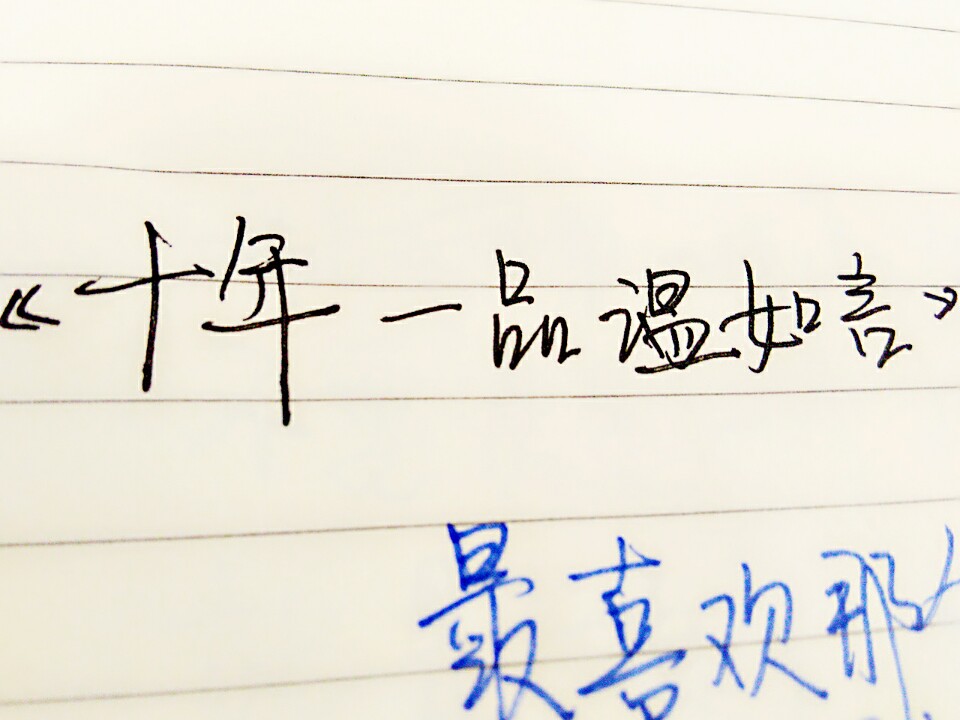 《十年一品温如言》
最喜欢那